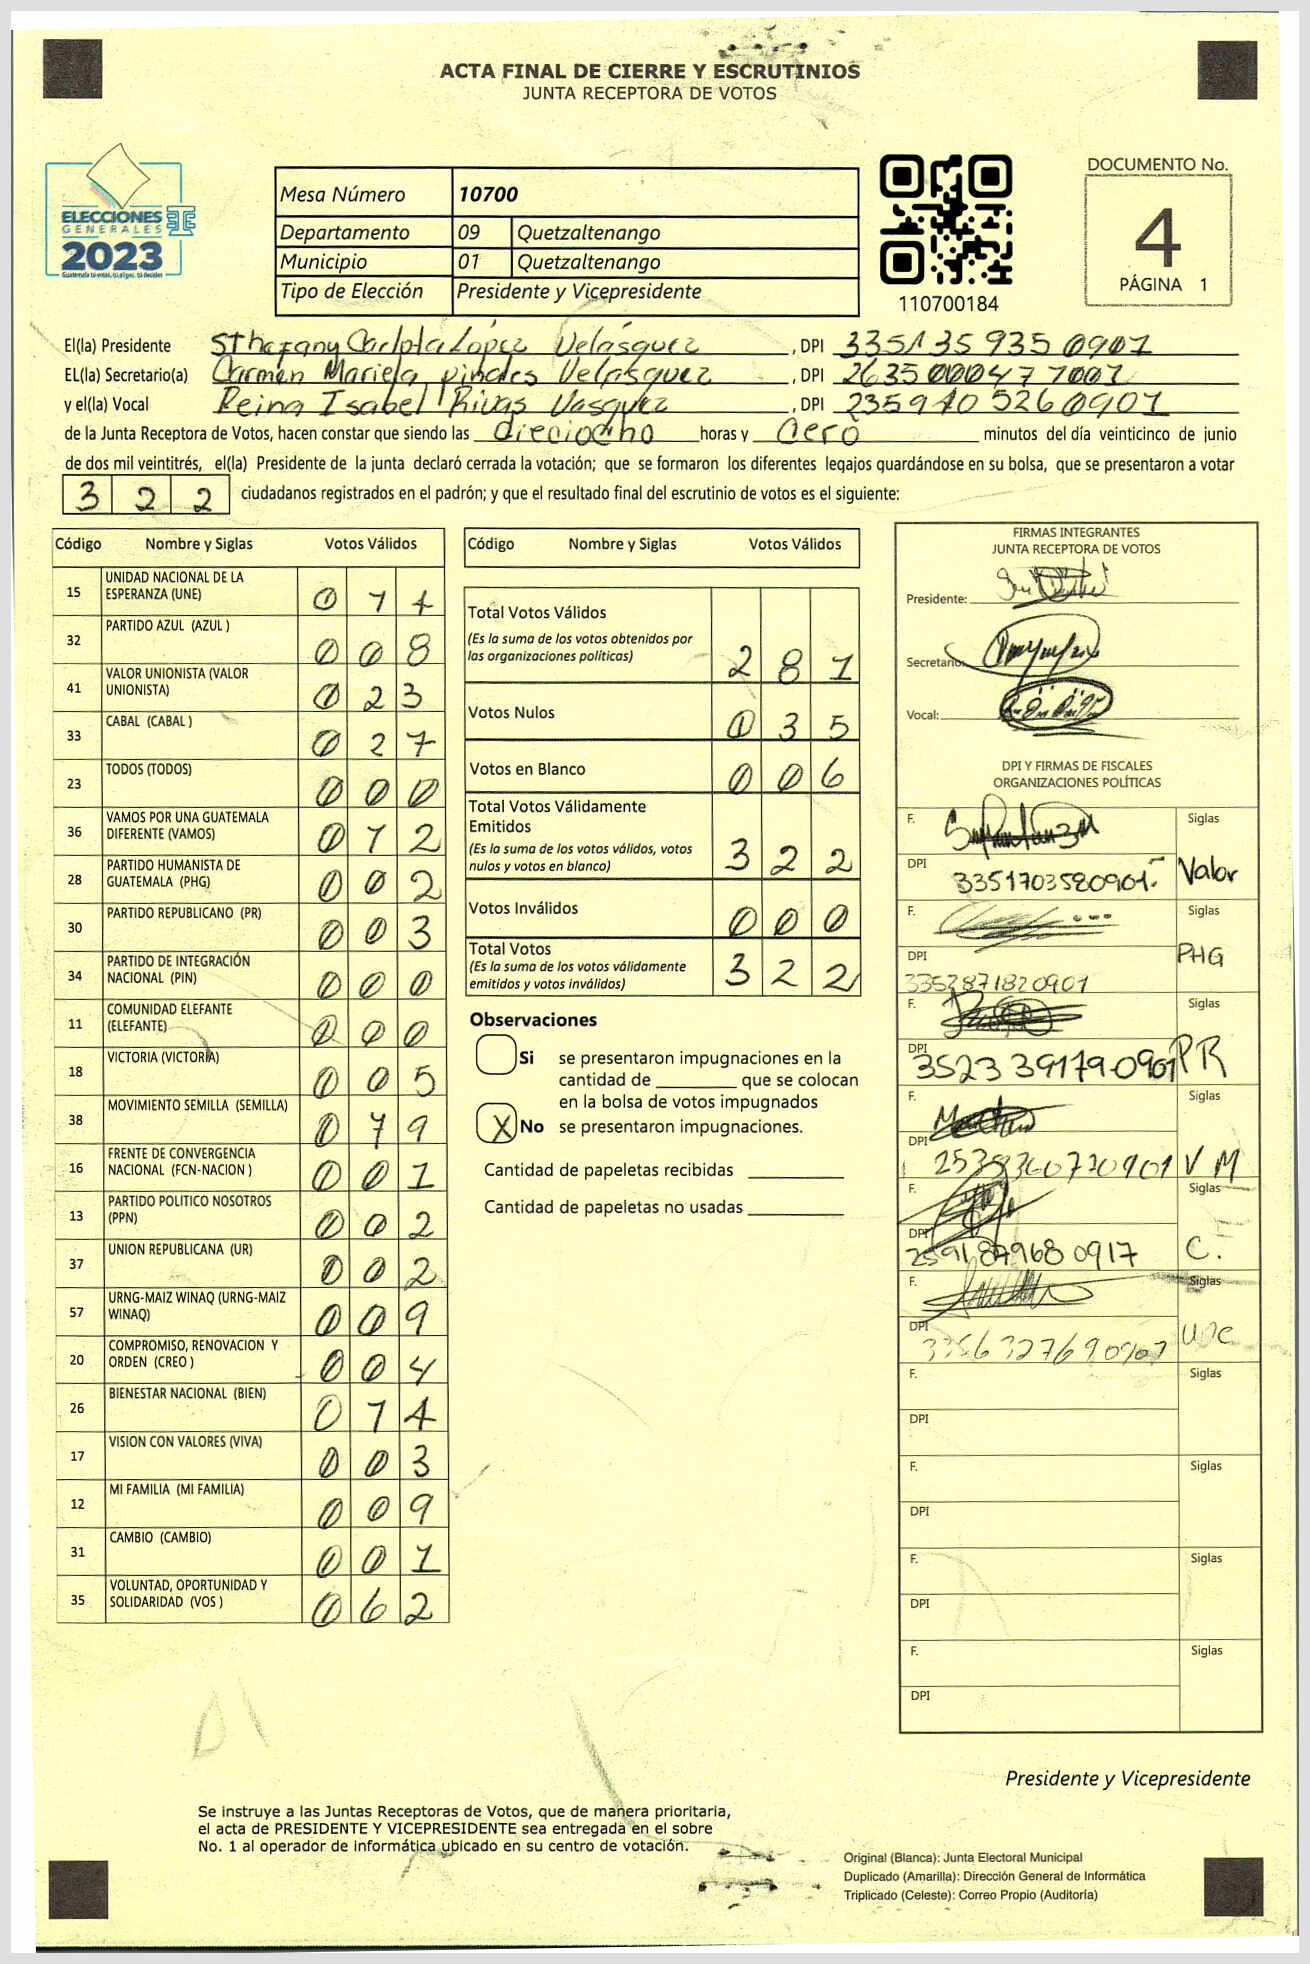 ACTA FINAL DE CIERRE Y ESCRUTINIOS
JUNTA RECEPTORA DE VOTOS
ELECCIONES
GENERALES
2023
Guatemala tú votas, tú eliges, tú decides
Mesa Número 10700
Departamento 09 Quetzaltenango
Municipio 01 Quetzaltenango
Tipo de Elección Presidente y Vicepresidente
110700184
DOCUMENTO No.
4
PÁGINA 1
El(la) Presidente Sthefany Carlota López Velásquez, DPI 3351359350901
EL(la) Secretario(a) Carmen Mariela Velásquez, DPI
y el(la) Vocal Reina Isabel Rivas Vasquez, DPI 2359105260901
de la Junta Receptora de Votos, hacen constar que siendo las dieciocho horas y cero minutos del día veinticinco de junio
de dos mil veintitrés, el(la) Presidente de la junta declaró cerrada la votación; que se formaron los diferentes legajos guardándose en su bolsa, que se presentaron a votar
3 2 2 ciudadanos registrados en el padrón; y que el resultado final del escrutinio de votos es el siguiente:
Código Nombre y Siglas Votos Válidos
15 UNIDAD NACIONAL DE LA
ESPERANZA (UNE) 0 1 4
32 PARTIDO AZUL (AZUL ) 0 0 8
41 VALOR UNIONISTA (VALOR
UNIONISTA) 0 2 3
33 CABAL (CABAL ) 0 2 7
23 TODOS (TODOS) 0 0 0
36 VAMOS POR UNA GUATEMALA
DIFERENTE (VAMOS) 0 1 2
28 PARTIDO HUMANISTA DE
GUATEMALA (PHG) 0 0 2
30 PARTIDO REPUBLICANO (PR) 0 0 3
34 PARTIDO DE INTEGRACIÓN
NACIONAL (PIN) 0 0 0
11 COMUNIDAD ELEFANTE
(ELEFANTE) 0 0 0
18 VICTORIA (VICTORIA) 0 0 5
38 MOVIMIENTO SEMILLA (SEMILLA) 0 7 9
16 FRENTE DE CONVERGENCIA
NACIONAL (FCN-NACION ) 0 0 1
13 PARTIDO POLITICO NOSOTROS
(PPN) 0 0 2
37 UNION REPUBLICANA (UR) 0 0 2
57 URNG-MAIZ WINAQ (URNG-MAIZ
WINAQ) 0 0 9
20 COMPROMISO, RENOVACION Y
ORDEN (CREO ) 0 0 4
26 BIENESTAR NACIONAL (BIEN) 0 1 4
17 VISION CON VALORES (VIVA) 0 0 3
12 MI FAMILIA (MI FAMILIA) 0 0 9
31 CAMBIO (CAMBIO) 0 0 1
35 VOLUNTAD, OPORTUNIDAD Y
SOLIDARIDAD (VOS ) 0 6 2
Código Nombre y Siglas Votos Válidos
Total Votos Válidos
(Es la suma de los votos obtenidos por
las organizaciones políticas) 2 8 1
Votos Nulos 0 3 5
Votos en Blanco 0 0 6
Total Votos Válidamente
Emitidos
(Es la suma de los votos válidos, votos
nulos y votos en blanco) 3 2 2
Votos Inválidos 0 0 0
Total Votos
(Es la suma de los votos válidamente
emitidos y votos inválidos) 3 2 2
Observaciones
Si se presentaron impugnaciones en la
cantidad de ________ que se colocan
en la bolsa de votos impugnados
X No se presentaron impugnaciones.
Cantidad de papeletas recibidas
Cantidad de papeletas no usadas
FIRMAS INTEGRANTES
JUNTA RECEPTORA DE VOTOS
Presidente:
Secretario:
Vocal:
DPI Y FIRMAS DE FISCALES
ORGANIZACIONES POLÍTICAS
F. Siglas
DPI 3351703580901 Valor
F. Siglas
DPI 3352871820901 PHG
F. Siglas
DPI 3523391790901 PR
F. Siglas
DPI V M
F. Siglas
DPI 2591879680917 C.
F. Siglas
DPI
F. Siglas
DPI
F. Siglas
DPI
F. Siglas
DPI
F. Siglas
DPI
Presidente y Vicepresidente
Se instruye a las Juntas Receptoras de Votos, que de manera prioritaria,
el acta de PRESIDENTE Y VICEPRESIDENTE sea entregada en el sobre
No. 1 al operador de informática ubicado en su centro de votación.
Original (Blanca): Junta Electoral Municipal
Duplicado (Amarilla): Dirección General de Informática
Triplicado (Celeste): Correo Propio (Auditoría)